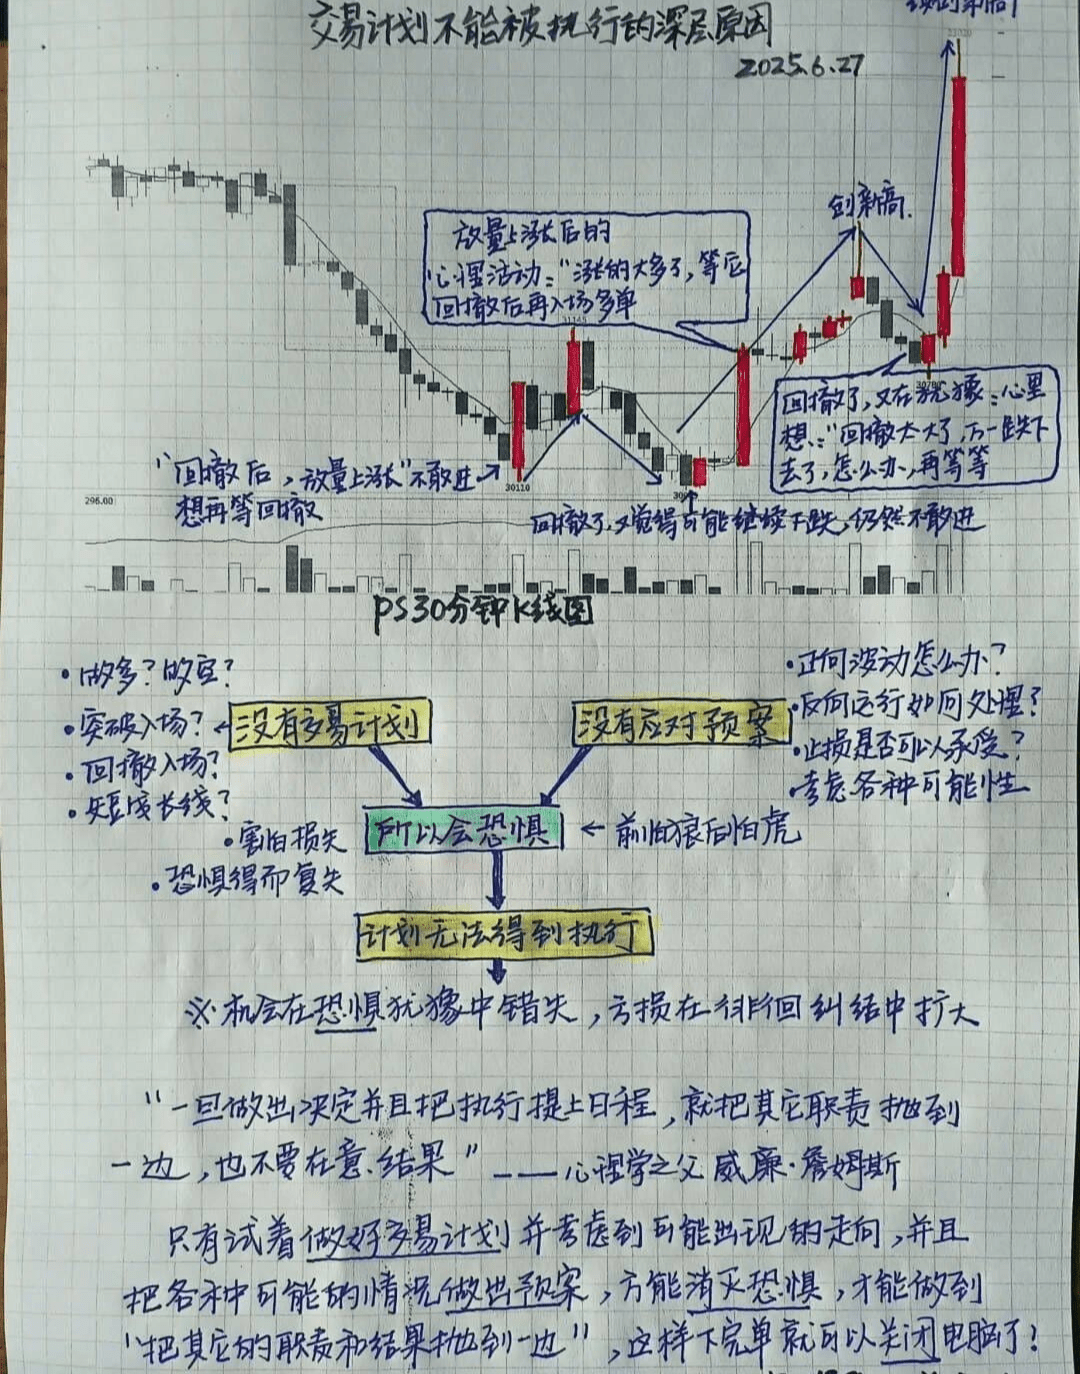 交易计划不能被执行的深层原因
2025.6.27
创新高.
放量上涨后的
心理活动:“涨的太多了,等它
回撤后再入场多单
31145
回撤了,又在犹豫:心里
想:“回撤太大了,万一跌下
去了,怎么办,再等等
“回撤后,放量上涨”不敢进
想再等回撤
30110
296.00
回撤了,又觉得可能继续下跌,仍然不敢进
PS30分钟K线图
·做多?做空?
·突破入场?
·回撤入场?
·短线长线?
没有交易计划
没有应对预案
·正向波动怎么办?
·反向运行如何处理?
·止损是否可以承受?
·考虑各种可能性
·害怕损失
·恐惧得而复失
所以会恐惧
←前怕狼后怕虎
计划无法得到执行
※机会在恐惧犹豫中错失,亏损在徘徊纠结中扩大
“一旦做出决定并且把执行提上日程,就把其它职责抛到
一边,也不要在意.结果”——心理学之父威廉·詹姆斯
只有试着做好交易计划并考虑到可能出现的走向,并且
把各种可能的情况做出预案,方能消灭恐惧,才能做到
“把其它的职责和结果抛到一边”,这样下完单就可以关闭电脑了!